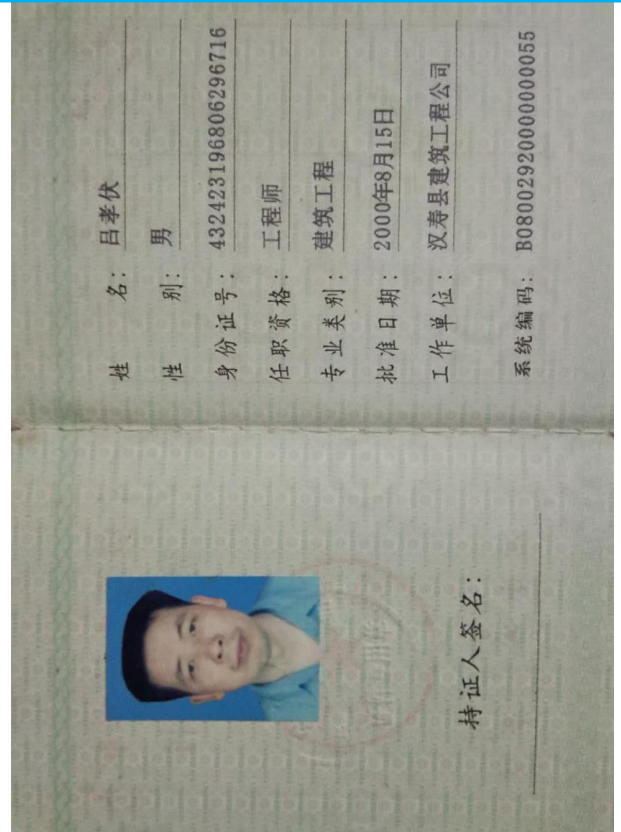 姓 名：吕孝伏
性 别：男
身份证号：432423196806296716
任职资格：工程师
专业类别：建筑工程
批准日期：2000年8月15日
工作单位：汉寿县建筑工程公司
系统编码：B08002920000000055
持证人签名：